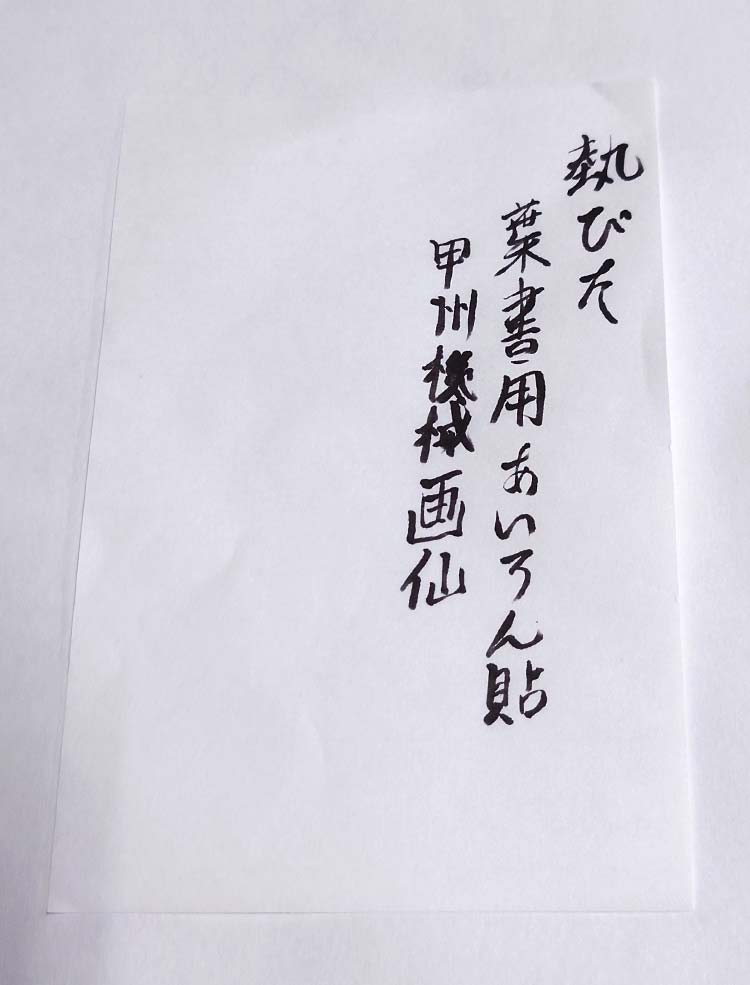 熱びた
葉書用あいろん貼
甲州機械画仙